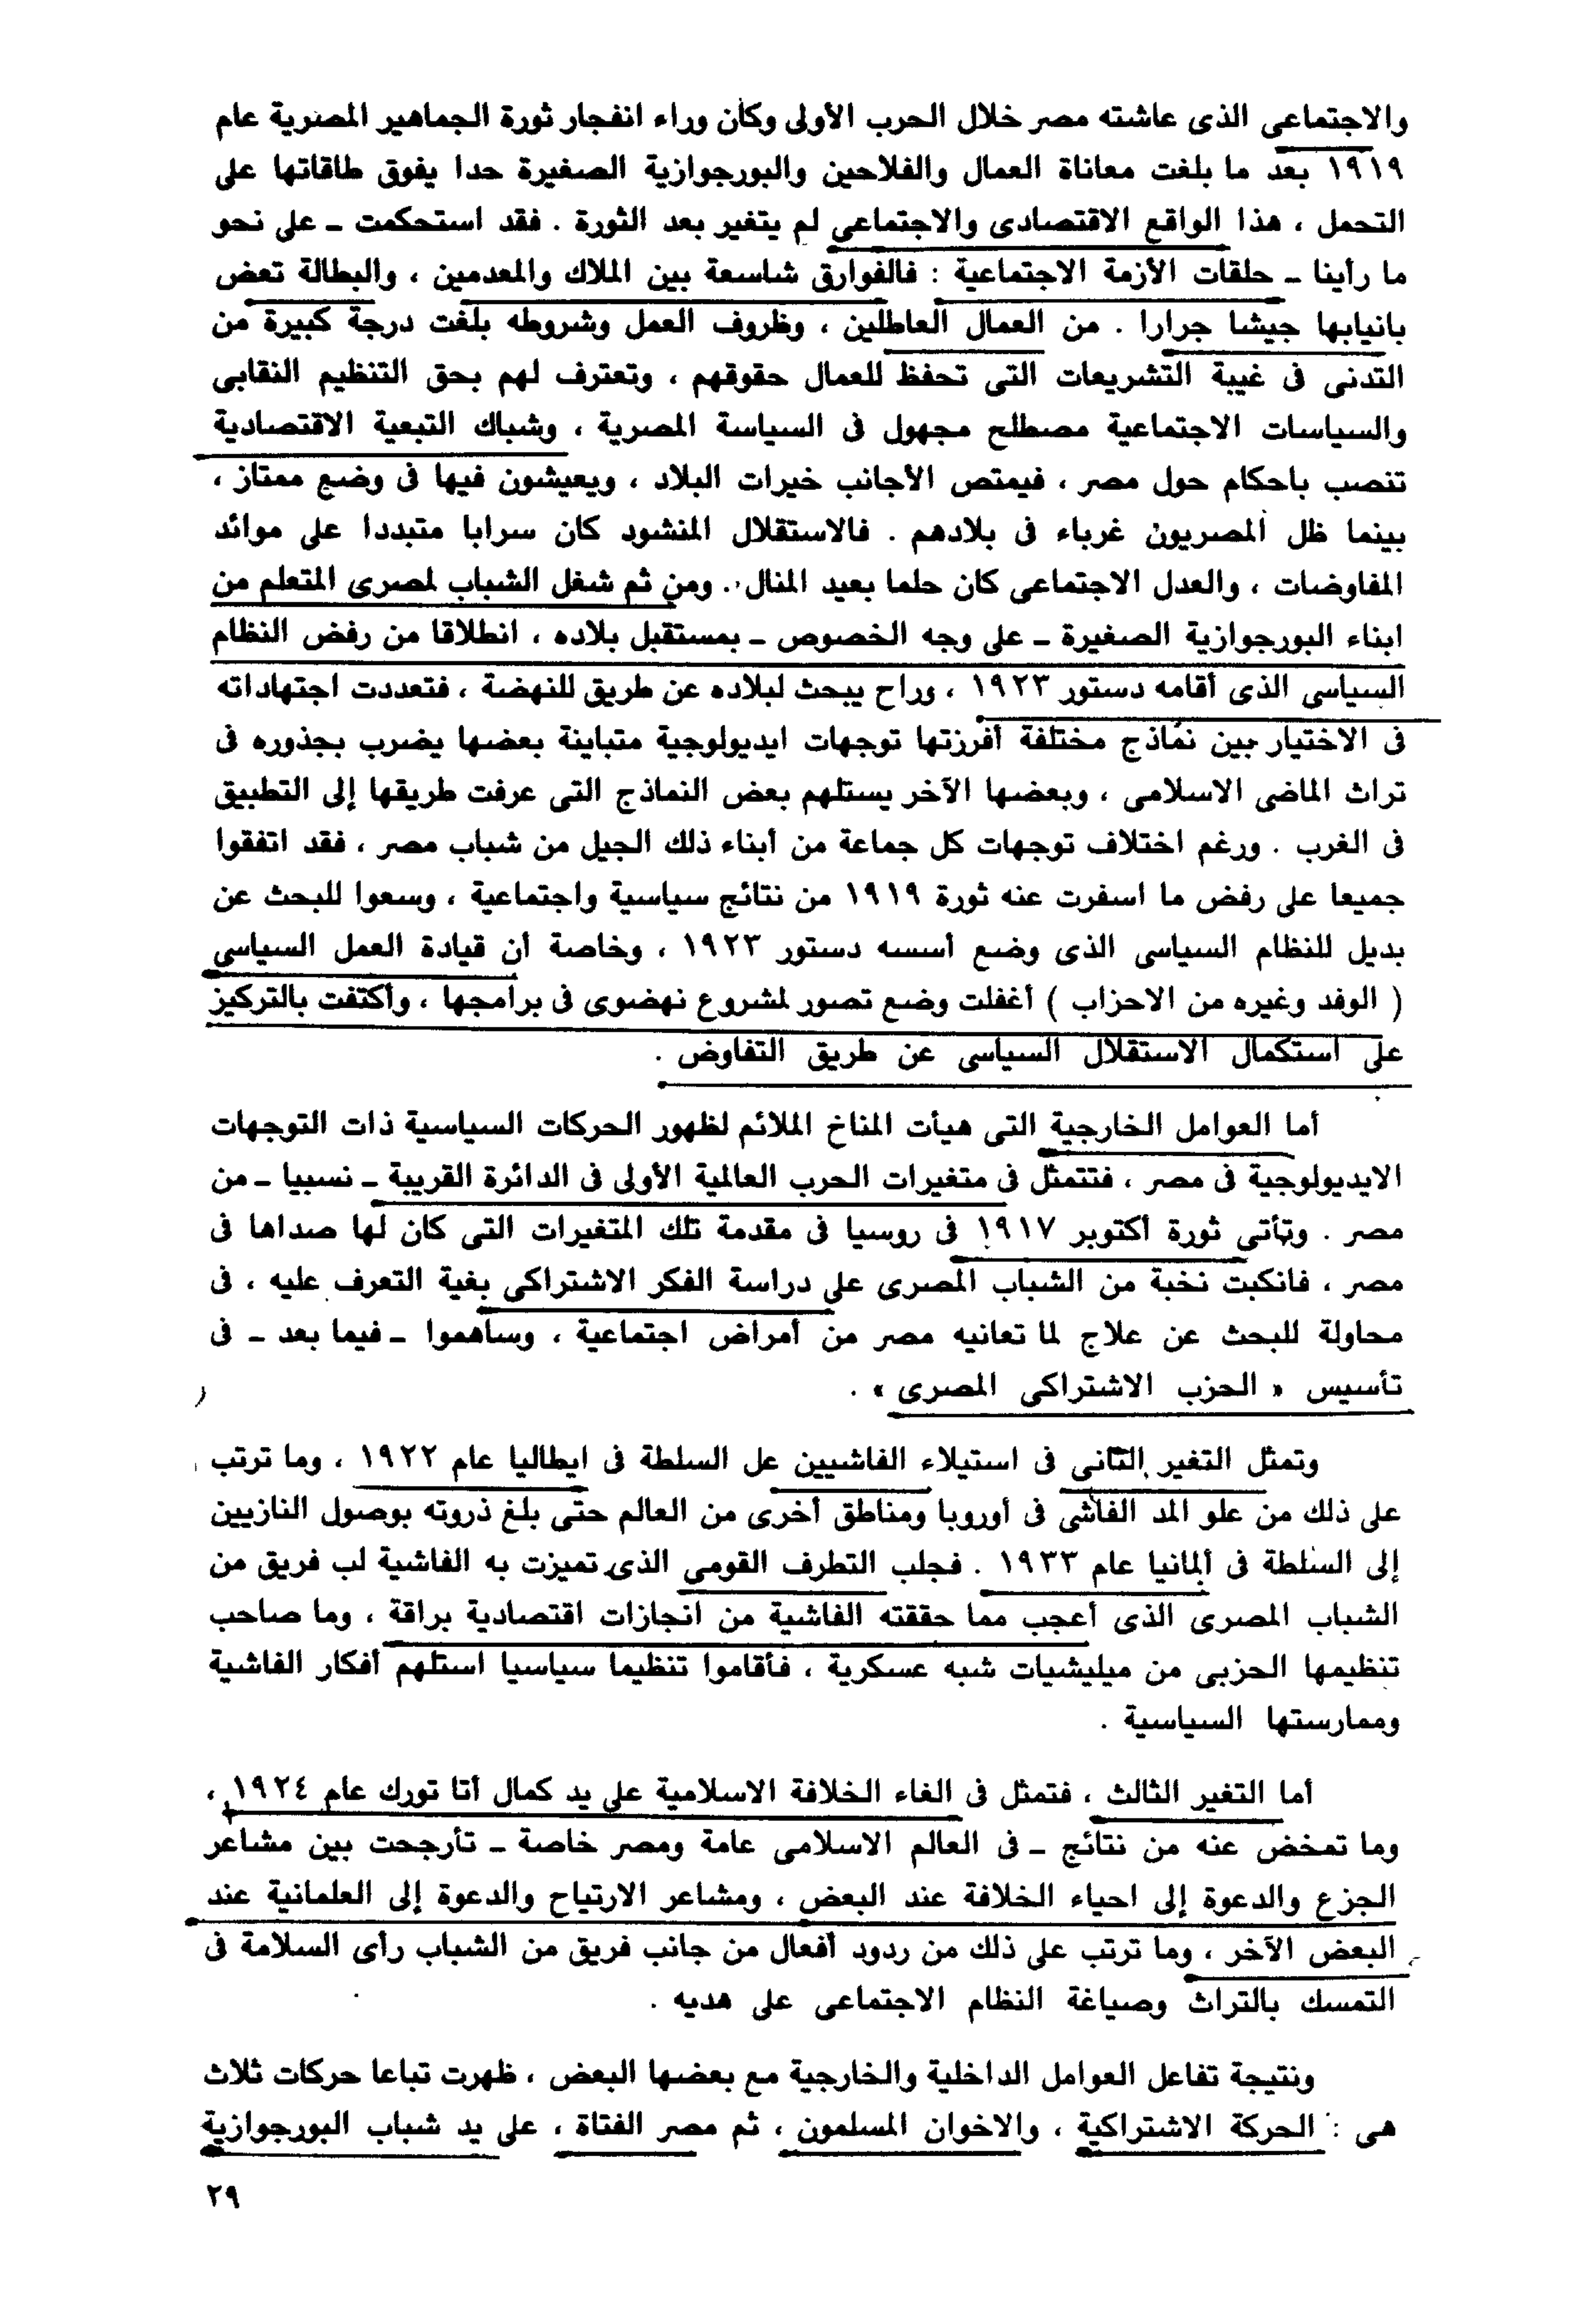 والاجتماعى الذى عاشته مصر خلال الحرب الأولى وكان وراء انفجار ثورة الجماهير المصرية عام
١٩١٩ بعد ما بلغت معاناة العمال والفلاحين والبورجوازية الصغيرة حدا يفوق طاقاتها على
التحمل ، هذا الواقع الاقتصادى والاجتماعى لم يتغير بعد الثورة . فقد استحكمت ـ على نحو
ما رأينا ـ حلقات الأزمة الاجتماعية : فالفوارق شاسعة بين الملاك والمعدمين ، والبطالة تعض
بانيابها جيشا جرارا . من العمال العاطلين ، وظروف العمل وشروطه بلغت درجة كبيرة من
التدنى فى غيبة التشريعات التى تحفظ للعمال حقوقهم ، وتعترف لهم بحق التنظيم النقابى
والسياسات الاجتماعية مصطلح مجهول فى السياسة المصرية ، وشباك التبعية الاقتصادية
تنصب باحكام حول مصر ، فيمتص الأجانب خيرات البلاد ، ويعيشون فيها فى وضع ممتاز ،
بينما ظل المصريون غرباء فى بلادهم . فالاستقلال المنشود كان سرابا متبددا على موائد
المفاوضات ، والعدل الاجتماعى كان حلما بعيد المنال . ومن ثم شغل الشباب لمصرى المتعلم من
ابناء البورجوازية الصغيرة ـ على وجه الخصوص ـ بمستقبل بلاده ، انطلاقا من رفض النظام
السياسى الذى أقامه دستور ١٩٢٣ ، وراح يبحث لبلاده عن طريق للنهضة ، فتعددت اجتهاداته
فى الاختيار بين نماذج مختلفة أفرزتها توجهات ايديولوجية متباينة بعضها يضرب بجذوره فى
تراث الماضى الاسلامى ، وبعضها الآخر يستلهم بعض النماذج التى عرفت طريقها إلى التطبيق
فى الغرب . ورغم اختلاف توجهات كل جماعة من أبناء ذلك الجيل من شباب مصر ، فقد اتفقوا
جميعا على رفض ما اسفرت عنه ثورة ١٩١٩ من نتائج سياسية واجتماعية ، وسعوا للبحث عن
بديل للنظام السياسى الذى وضع أسسه دستور ١٩٢٣ ، وخاصة أن قيادة العمل السياسى
( الوفد وغيره من الاحزاب ) أغفلت وضع تصور لمشروع نهضوى فى برامجها ، وأكتفت بالتركيز
على استكمال الاستقلال السياسى عن طريق التفاوض .
أما العوامل الخارجية التى هيأت المناخ الملائم لظهور الحركات السياسية ذات التوجهات
الايديولوجية فى مصر ، فتتمثل فى متغيرات الحرب العالمية الأولى فى الدائرة القريبة ـ نسبيا ـ من
مصر . وتأتى ثورة أكتوبر ١٩١٧ فى روسيا فى مقدمة تلك المتغيرات التى كان لها صداها فى
مصر ، فانكبت نخبة من الشباب المصرى على دراسة الفكر الاشتراكى بغية التعرف عليه ، فى
محاولة للبحث عن علاج لما تعانيه مصر من أمراض اجتماعية ، وساهموا ـ فيما بعد ـ فى
تأسيس « الحزب الاشتراكى المصرى » .
وتمثل التغير الثانى فى استيلاء الفاشيين عل السلطة فى ايطاليا عام ١٩٢٢ ، وما ترتب
على ذلك من علو المد الفاشى فى أوروبا ومناطق أخرى من العالم حتى بلغ ذروته بوصول النازيين
إلى السلطة فى ألمانيا عام ١٩٣٣ . فجلب التطرف القومى الذى تميزت به الفاشية لب فريق من
الشباب المصرى الذى أعجب مما حققته الفاشية من انجازات اقتصادية براقة ، وما صاحب
تنظيمها الحزبى من ميليشيات شبه عسكرية ، فأقاموا تنظيما سياسيا استلهم أفكار الفاشية
وممارستها السياسية .
أما التغير الثالث ، فتمثل فى الغاء الخلافة الاسلامية على يد كمال أتا تورك عام ١٩٢٤ ،
وما تمخض عنه من نتائج ـ فى العالم الاسلامى عامة ومصر خاصة ـ تأرجحت بين مشاعر
الجزع والدعوة إلى احياء الخلافة عند البعض ، ومشاعر الارتياح والدعوة إلى العلمانية عند
البعض الآخر ، وما ترتب على ذلك من ردود أفعال من جانب فريق من الشباب رأى السلامة فى
التمسك بالتراث وصياغة النظام الاجتماعى على هديه .
ونتيجة تفاعل العوامل الداخلية والخارجية مع بعضها البعض ، ظهرت تباعا حركات ثلاث
هى : الحركة الاشتراكية ، والاخوان المسلمون ، ثم مصر الفتاة ، على يد شباب البورجوازية
٢٩